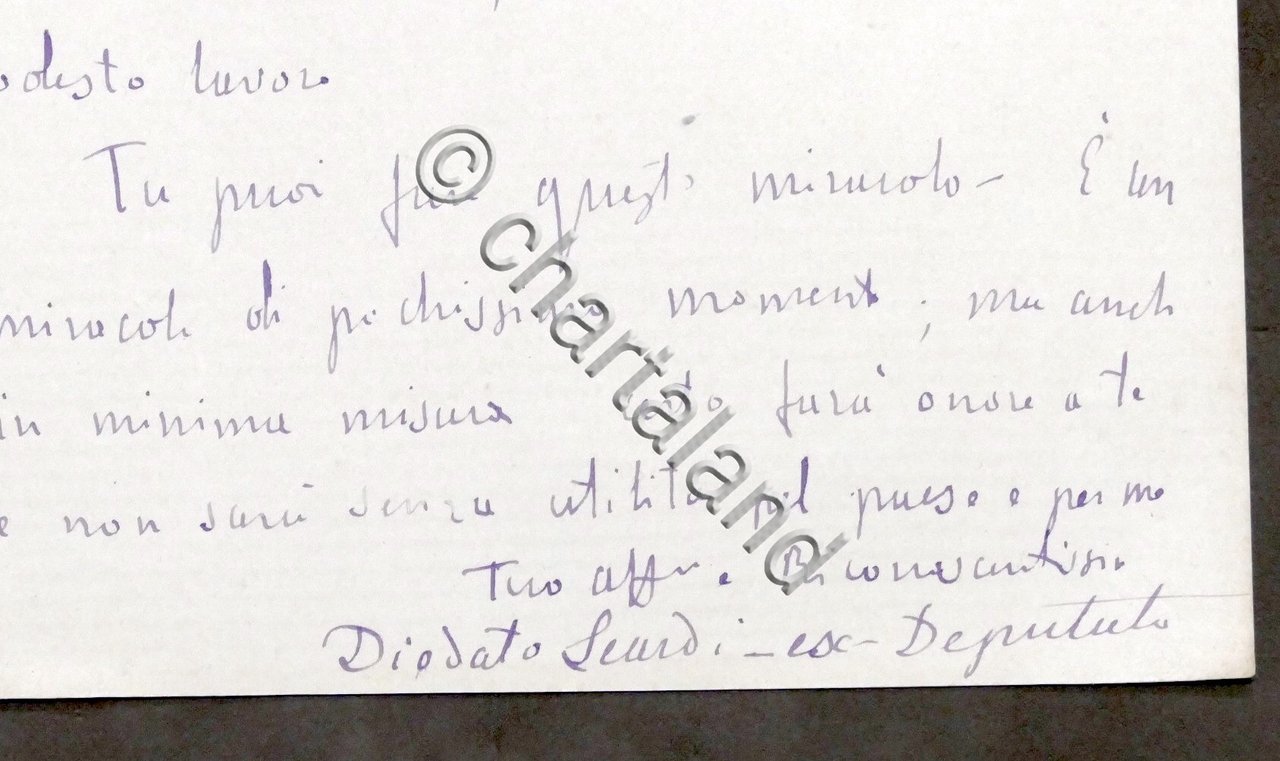 odesto lavoro
Tu puoi fare questo miracolo - È un
miracolo di pochissimi momenti; ma anche
in minima misura farà onore a te
e non sarà senza utilità pel paese e per me
Tuo affmo e Riconoscentissimo
Diodato - ex - Deputato
© chartaland